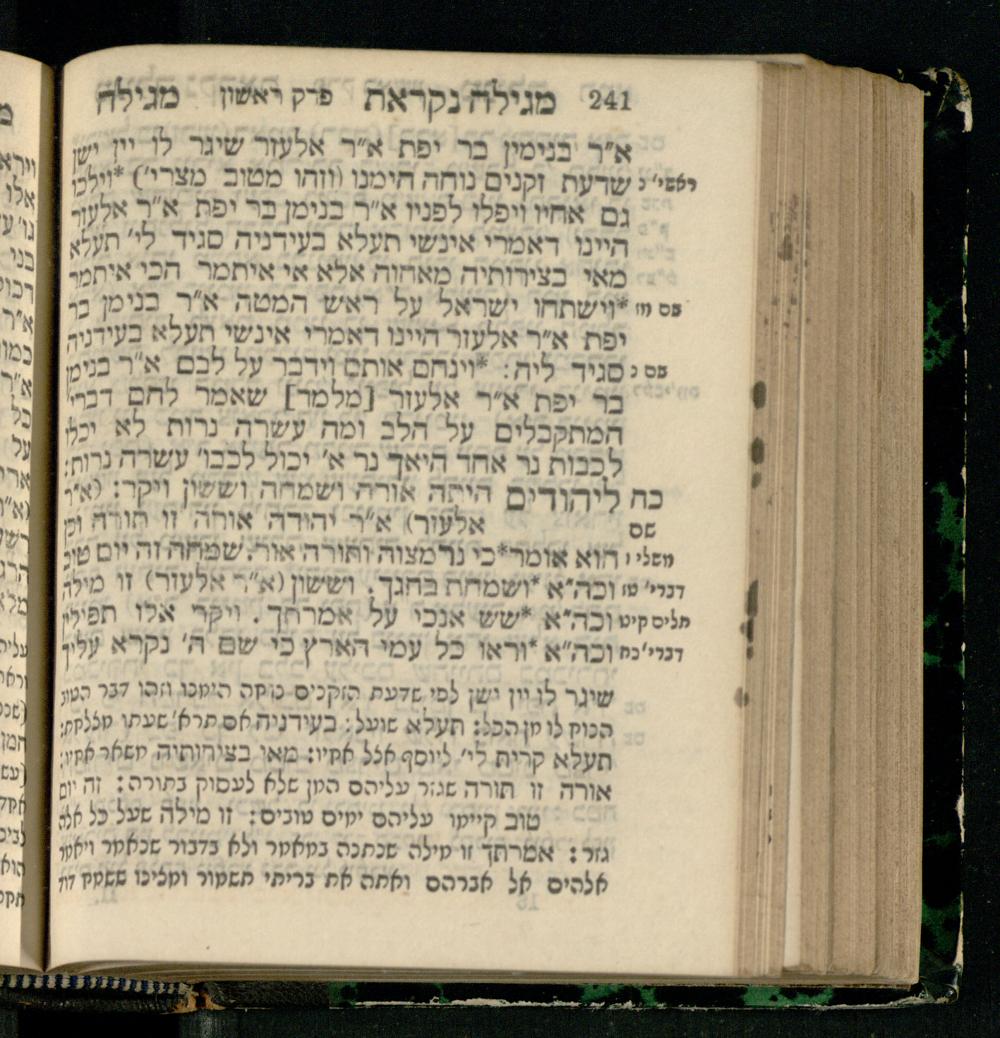 241 מגילה נקראת פרק ראשון מגילה
א״ר בנימין בר יפת א״ר אלעזר שיגר לו יין ישן
ראשי׳ נ שדעת זקנים נוחה הימנו (וזהו מטוב מצרי׳) *וילכו
גם אחיו ויפלו לפניו א״ר בנימן בר יפת א״ר אלעזר
היינו דאמרי אינשי תעלא בעידניה סגיד לי׳ תעלא
מאי בצירותיה מאחוה אלא אי איתמר הכי איתמר
שם מז *וישתחו ישראל על ראש המטה א״ר בנימן בר
יפת א״ר אלעזר היינו דאמרי אינשי תעלא בעידניה
שם נ סגיד ליה: *וינחם אותם וידבר על לבם א״ר בנימן
בר יפת א״ר אלעזר [מלמד] שאמר להם דברי׳
המתקבלים על הלב ומה עשרה נרות לא יכלו
לכבות נר אחד היאך נר א׳ יכול לכבו׳ עשרה נרות:
כח ליהודים היתה אורה ושמחה וששון ויקר: (א״ר
שם אלעזר) א״ר יהודה אורה זו תורה וכן
משלי ו הוא אומר *כי נר מצוה ותורה אור. שמחה זה יום טוב
דברי׳ טז וכה״א *ושמחת בחגך. וששון (א״ר אלעזר) זו מילה
תלים קיט וכה״א *שש אנכי על אמרתך. ויקר אלו תפילין
דברי׳ כח וכה״א *וראו כל עמי הארץ כי שם ה׳ נקרא עליך
שיגר לו יין ישן לפי שדעת הזקנים נוחה הימנו וזהו דבר הטוב
הנוח לו מן הכל: תעלא שועל: בעידניה אם תרא׳ שעתו מצלחת:
תעלא קרית לי׳ ליוסף אצל אחיו: מאי בצירותיה משאר אחיו:
אורה זו תורה שגזר עליהם המן שלא לעסוק בתורה: זה יום
טוב קיימו עליהם ימים טובים: זו מילה שעל כל אלה
גזר: אמרתך זו מילה שנתנה במאמר ולא בדבור שנאמר ויאמר
אלהים אל אברהם ואתה את בריתי תשמור ומצינו ששמח דוד